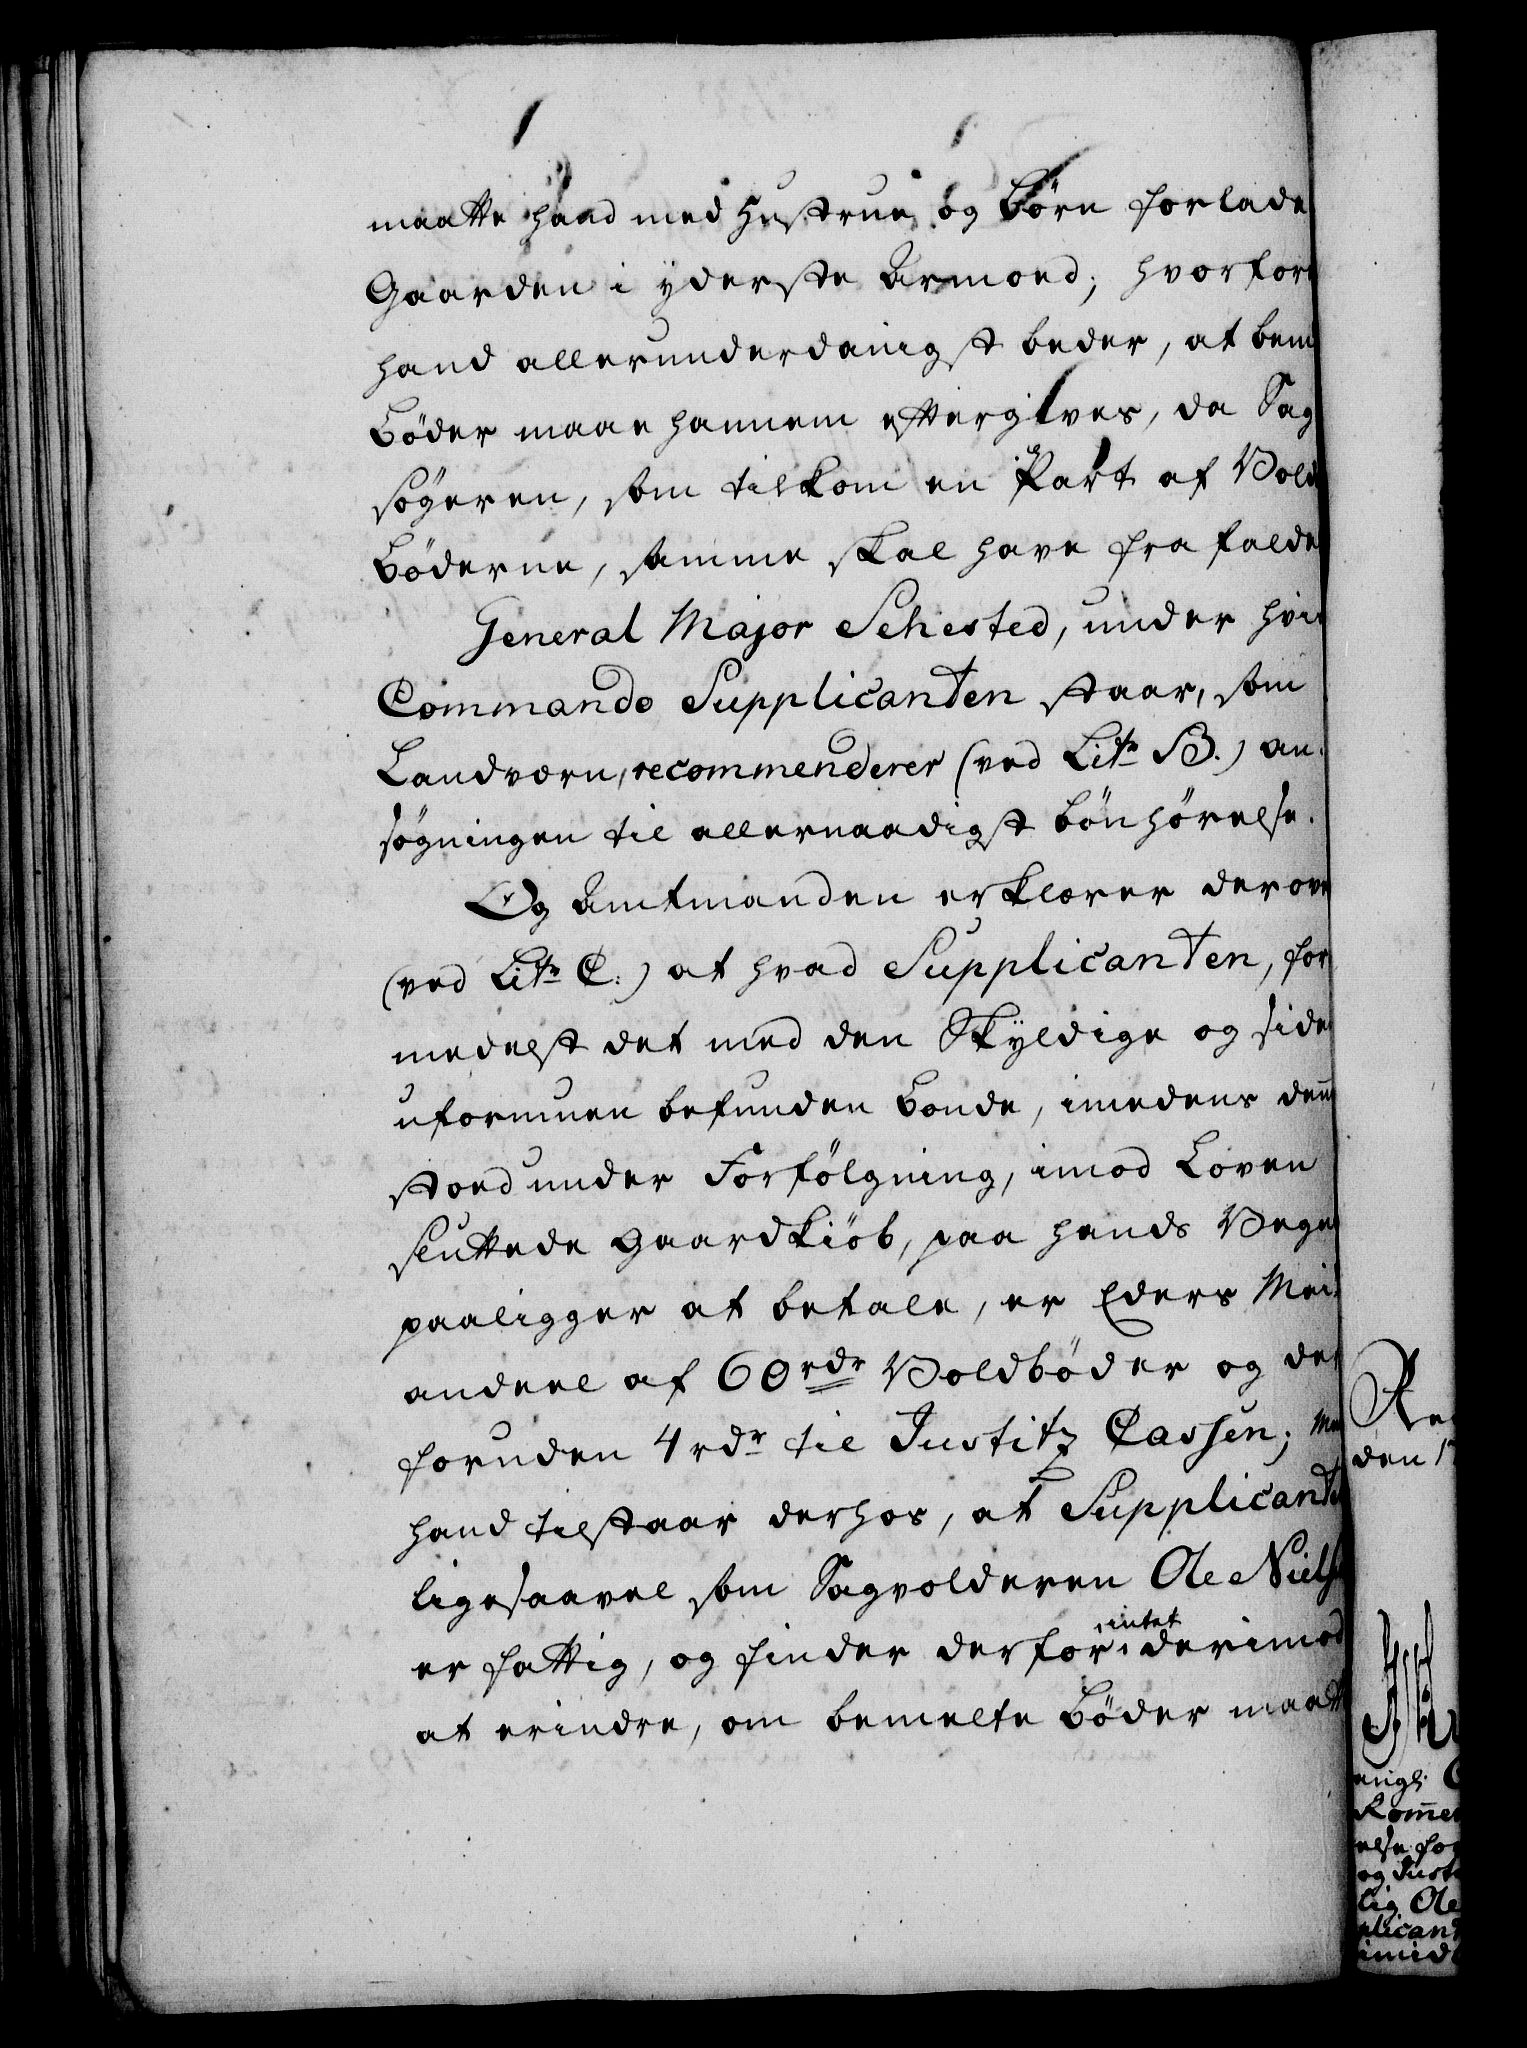 maatte hand med Hustrue og Börn forlade
Gaarden i yderste Armoed; hvorfor
hand allerunderdanigst beder, at bem
Böder maae hannem eftergives, da Sag
sögeren, som tilkom en Part af Vold
Böderne, samme skal have frafalde
General Major Sehested, under hvis
Commando Supplicanten staar, som
Landværn, recommenderer (ved Litr B.) an-
søgningen til allernaadigst bönhörelse.
Og Amtmanden erklærer derove
(ved Litr C:) at hvad Supplicanten, for
medelst det med den Skyldige og side
uformuen befunden Bonde, imedens denn
stoed under Forfölgning, imod Loven
sluttede Gaardkiöb, paa hands Vegne
paaligger at betale, er Eders Mai:
andeel af 60 rdr Voldböder og der
foruden 4 rdr til Justitz Cassen; Men
hand tilstaar derhos, at Supplicanten
ligesaavel som Sagvolderen Ole Niels
er fattig, og finder derfor intet derimod
at erindre, om bemelte Böder maatte
den 1
eugl:
Komme
else for
og Just
lig Ole
plicant
imid